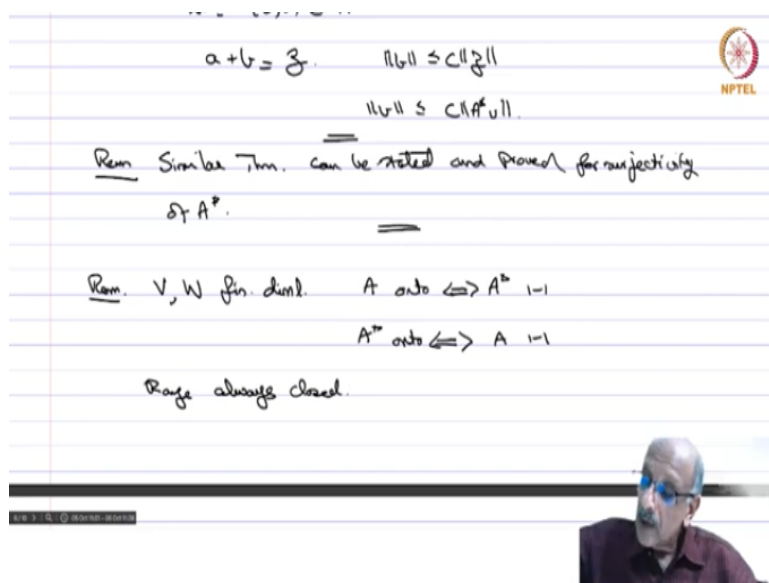 a + b = z. ||b|| ≤ C||z||
NPTEL
||v|| ≤ C||A*v||.
Rem Similar Thm. can be stated and proved for surjectivity
of A*.
Rem. V, W fin. diml. A onto <=> A* 1-1
A* onto <=> A 1-1
Range always closed.